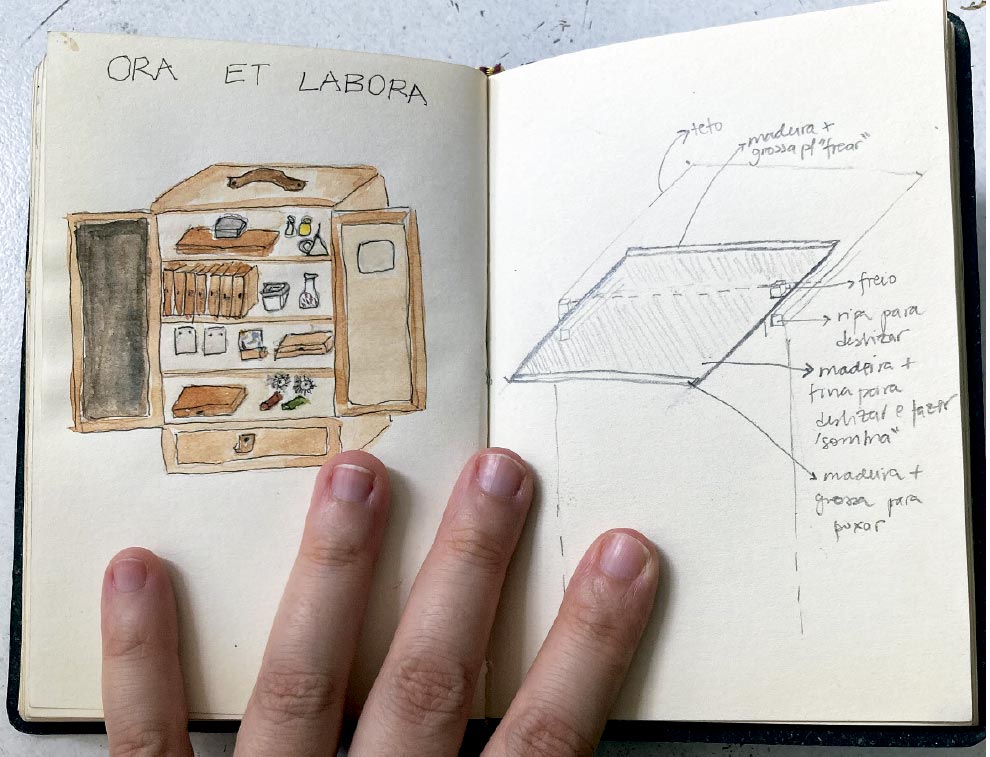 ORA ET LABORA
teto
madeira +
grossa p/ "frear"
freio
ripa para
deslizar
madeira +
fina para
deslizar e fazer
"sombra"
madeira +
grossa para
puxar